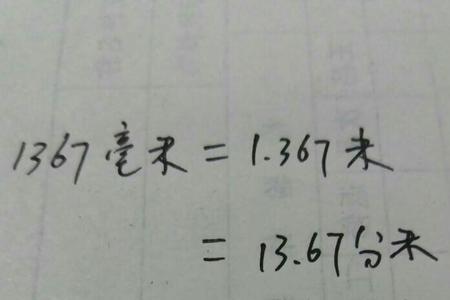 1367毫米=1.367米
=13.67分米